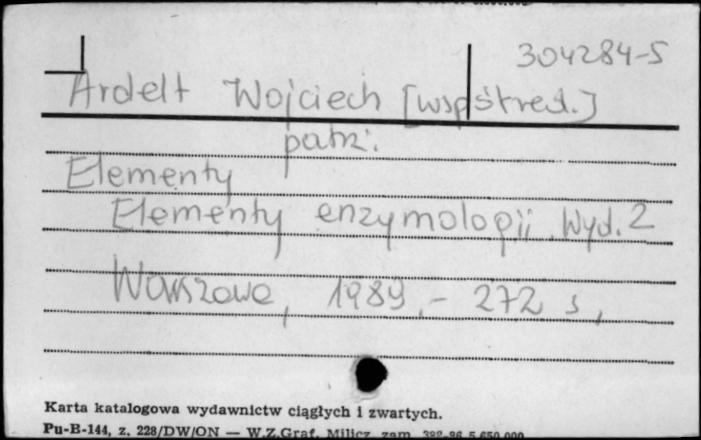 304284-5
Ardelt Wojciech [współred.]
patrz:
Elementy
Elementy enzymologii. Wyd. 2
Warszawa, 1989.- 272 s,
Karta katalogowa wydawnictw ciągłych i zwartych.
Pu-B-144, z. 228/DW/ON — W.Z.Graf. Milicz, zam.